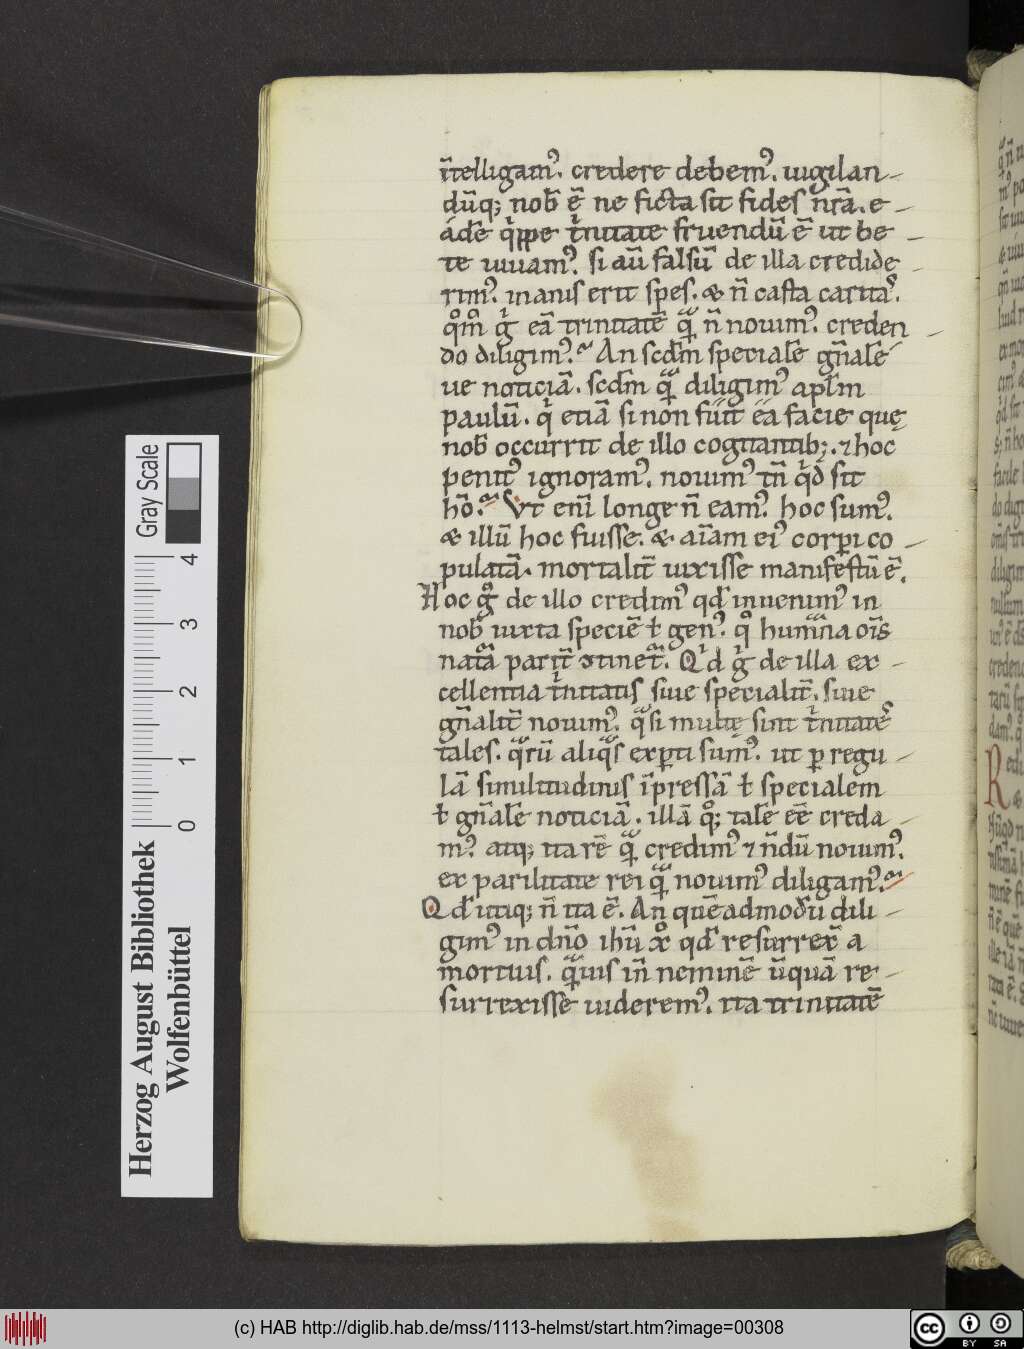 ĩtelligam᷒. credere debem᷒. uigilan-
dũq; nob̃ ẽ ne ficta sit fides nr̃a. e-
ádẽ q̍ppe t̍nitate fruendũ ẽ ut be-
te uiuam᷒. si aũ falsũ de illa credide-
rim᷒. inanis erit spes. & ñ casta carita᷒.
qm̊ g̊ eã trinitatẽ q̃ ñ nouim᷒. creden-
do diligim᷒. An scdm̃ specialẽ gñalẽ
ue noticiã. scdm̃ q̃ diligim᷒ aplm̃
paulũ. q̍ etiã si non fuit ea facie quę
nob̃ occurrit de illo cogitantib;. ⁊ hoc
penit᷒ ignoram᷒. nouim᷒ tñ q̍d sit
hõ. Vt enĩ longe ñ eam᷒. hoc sum᷒.
& illũ hoc fuisse. & aĩam ei᷒ corpi co-
pulatã. mortalit̃ uixisse manifestũ ẽ.
Hoc g̊ de illo credim᷒ qd̃ inuenim᷒ in
nob̃ iuxta speciẽ ł gen᷒. q̊ humana oĩs
natã parit̃ ɔtinet̃. Q̍d g̊ de illa ex-
cellentia t̍nitatis siue specialit̃. siue
gñalit̃ nouim᷒. q̃si multę sint t̍nitatẽ
tales. q̃rũ aliq̃s expti sum᷒. ut p regu-
lã similitudinis ĩpressã ł specialem
ł gñalẽ noticiã. illã q̊; talẽ eẽ creda-
m᷒. atq; ita rẽ q̃ credim᷒ ⁊ ñdũ nouim᷒.
ex parilitate rei q̃ nouim᷒ diligam᷒.
Qd̃ utiq; ñ ita ẽ. An quẽadmodũ dili-
gim᷒ in dño ihũ xp̊ qd̃ resurrex̃ a
mortuis. q̃uis in neminẽ ũquã re-
surrexisse uiderem᷒. ita trinitatẽ
Gray Scale
0 1 2 3 4
Herzog August Bibliothek
Wolfenbüttel
(c) HAB http://diglib.hab.de/mss/1113-helmst/start.htm?image=00308
cc BY SA